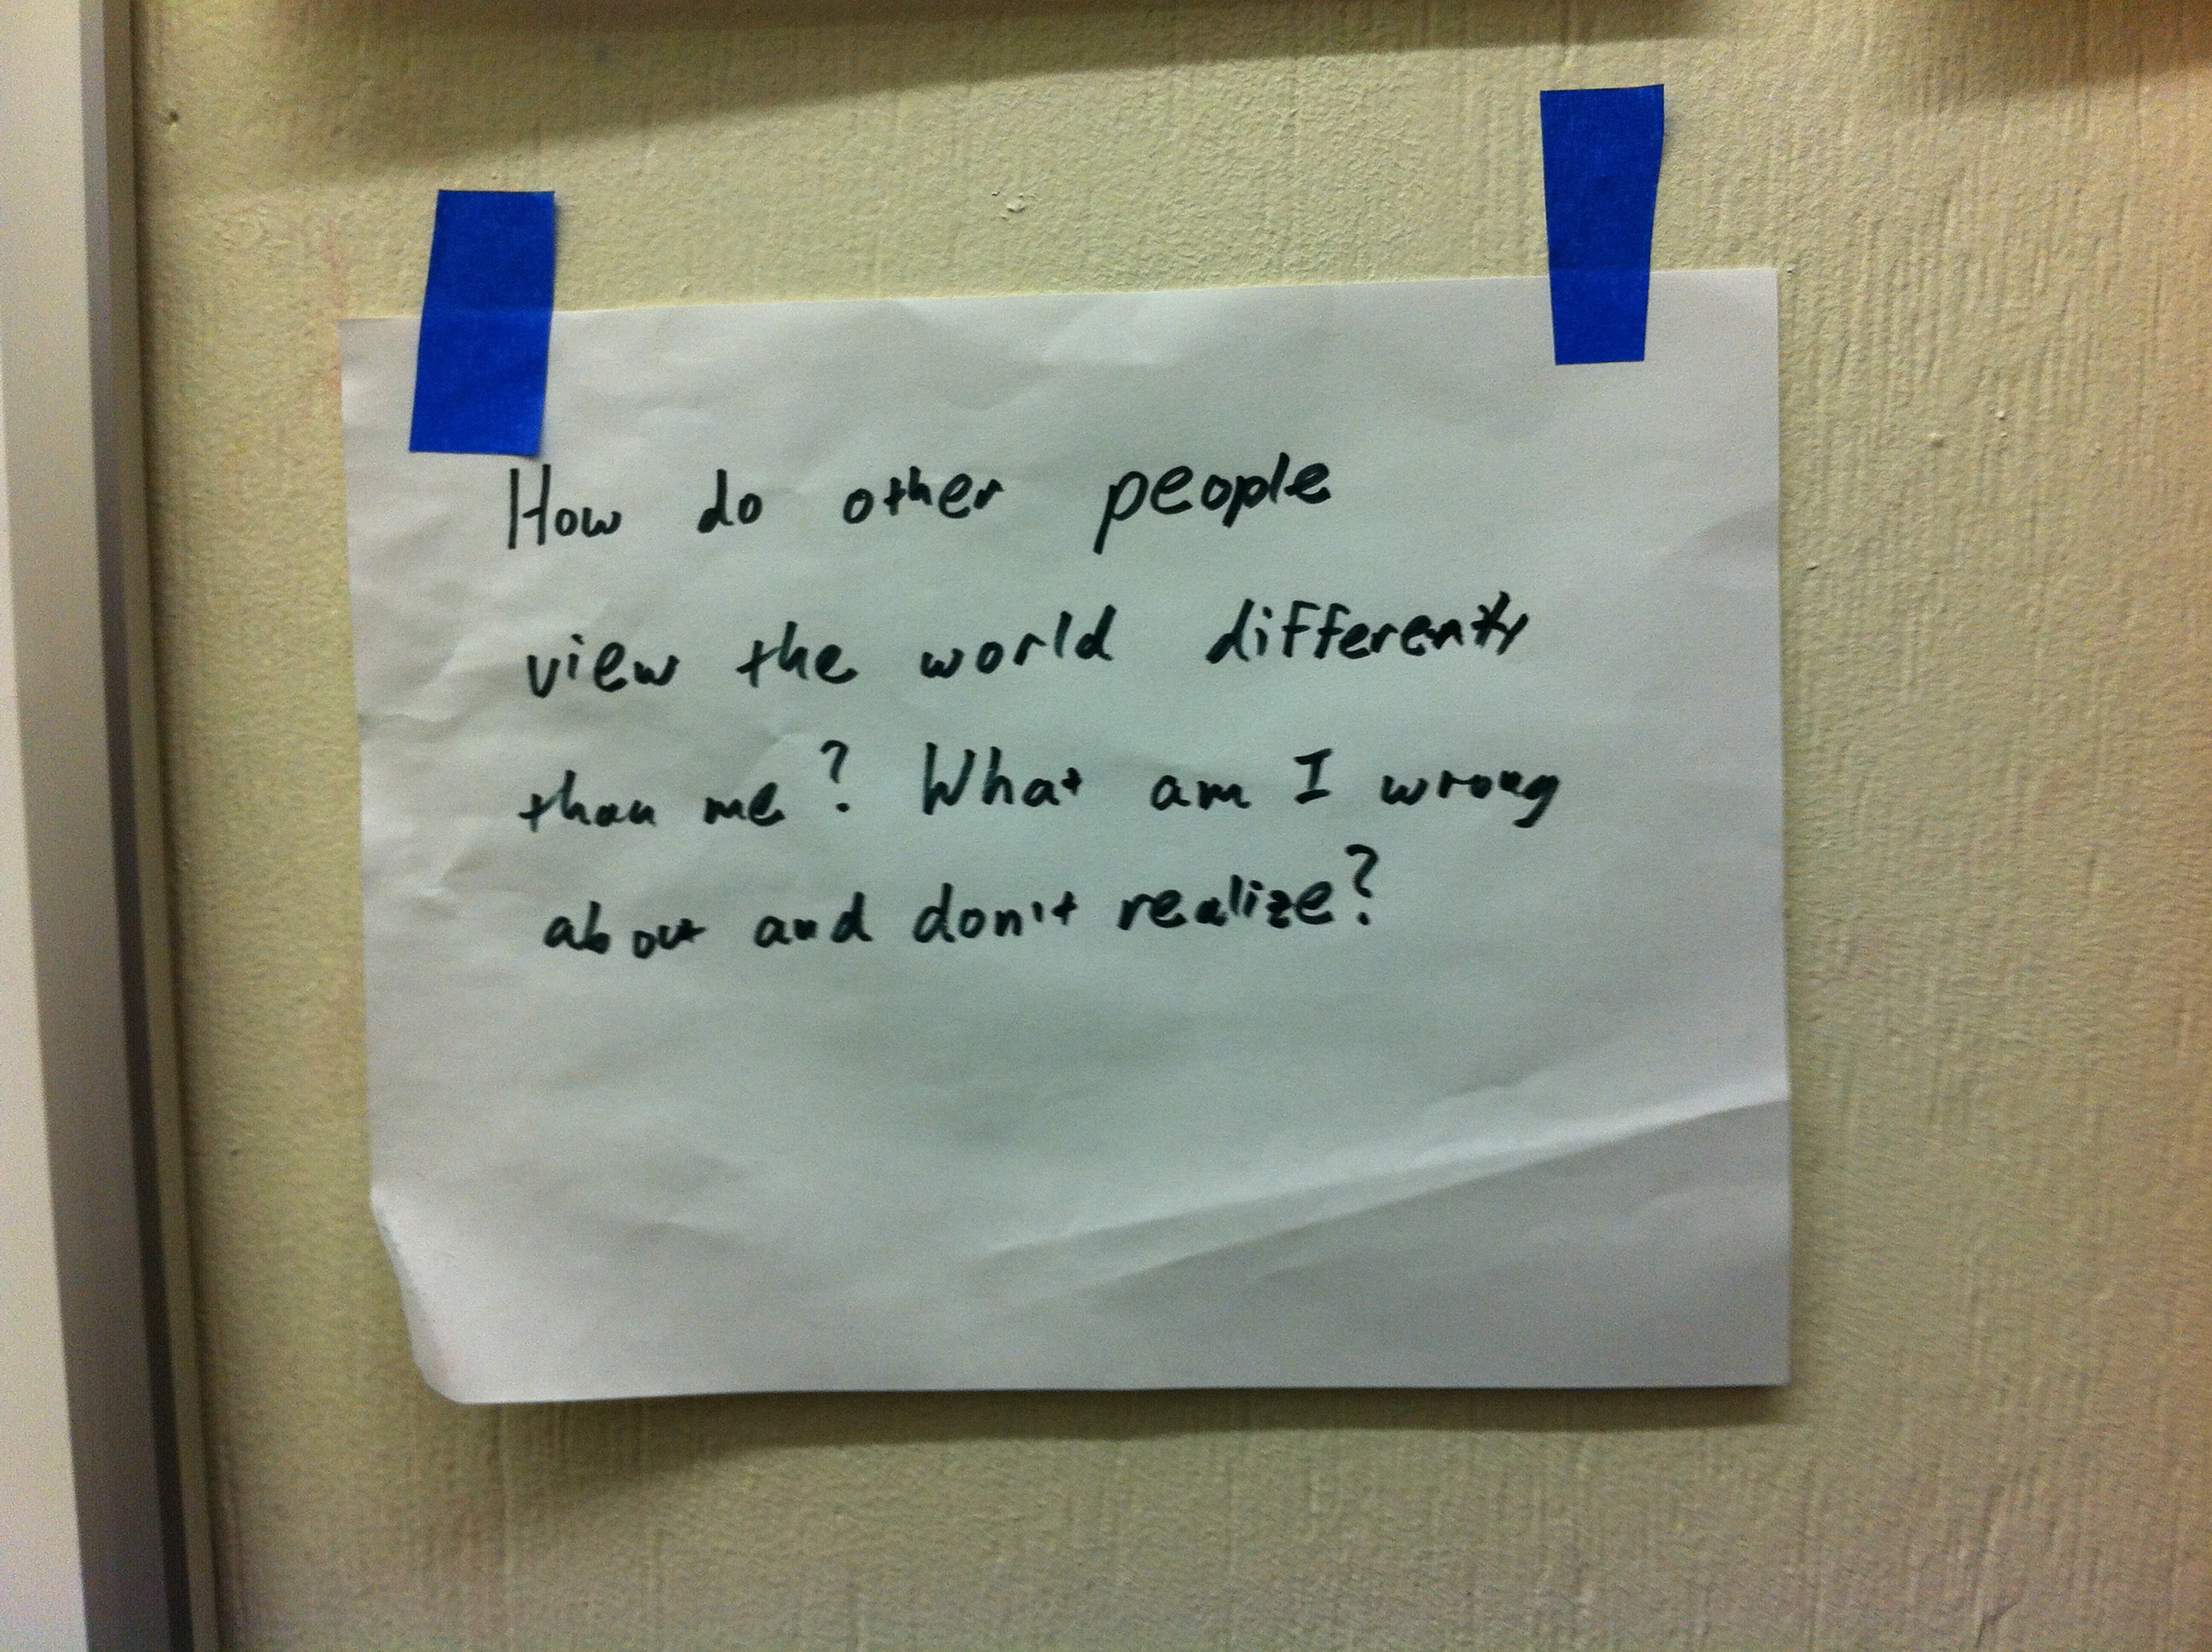 How do other people
view the world differently
than me? What am I wrong
about and don't realize?